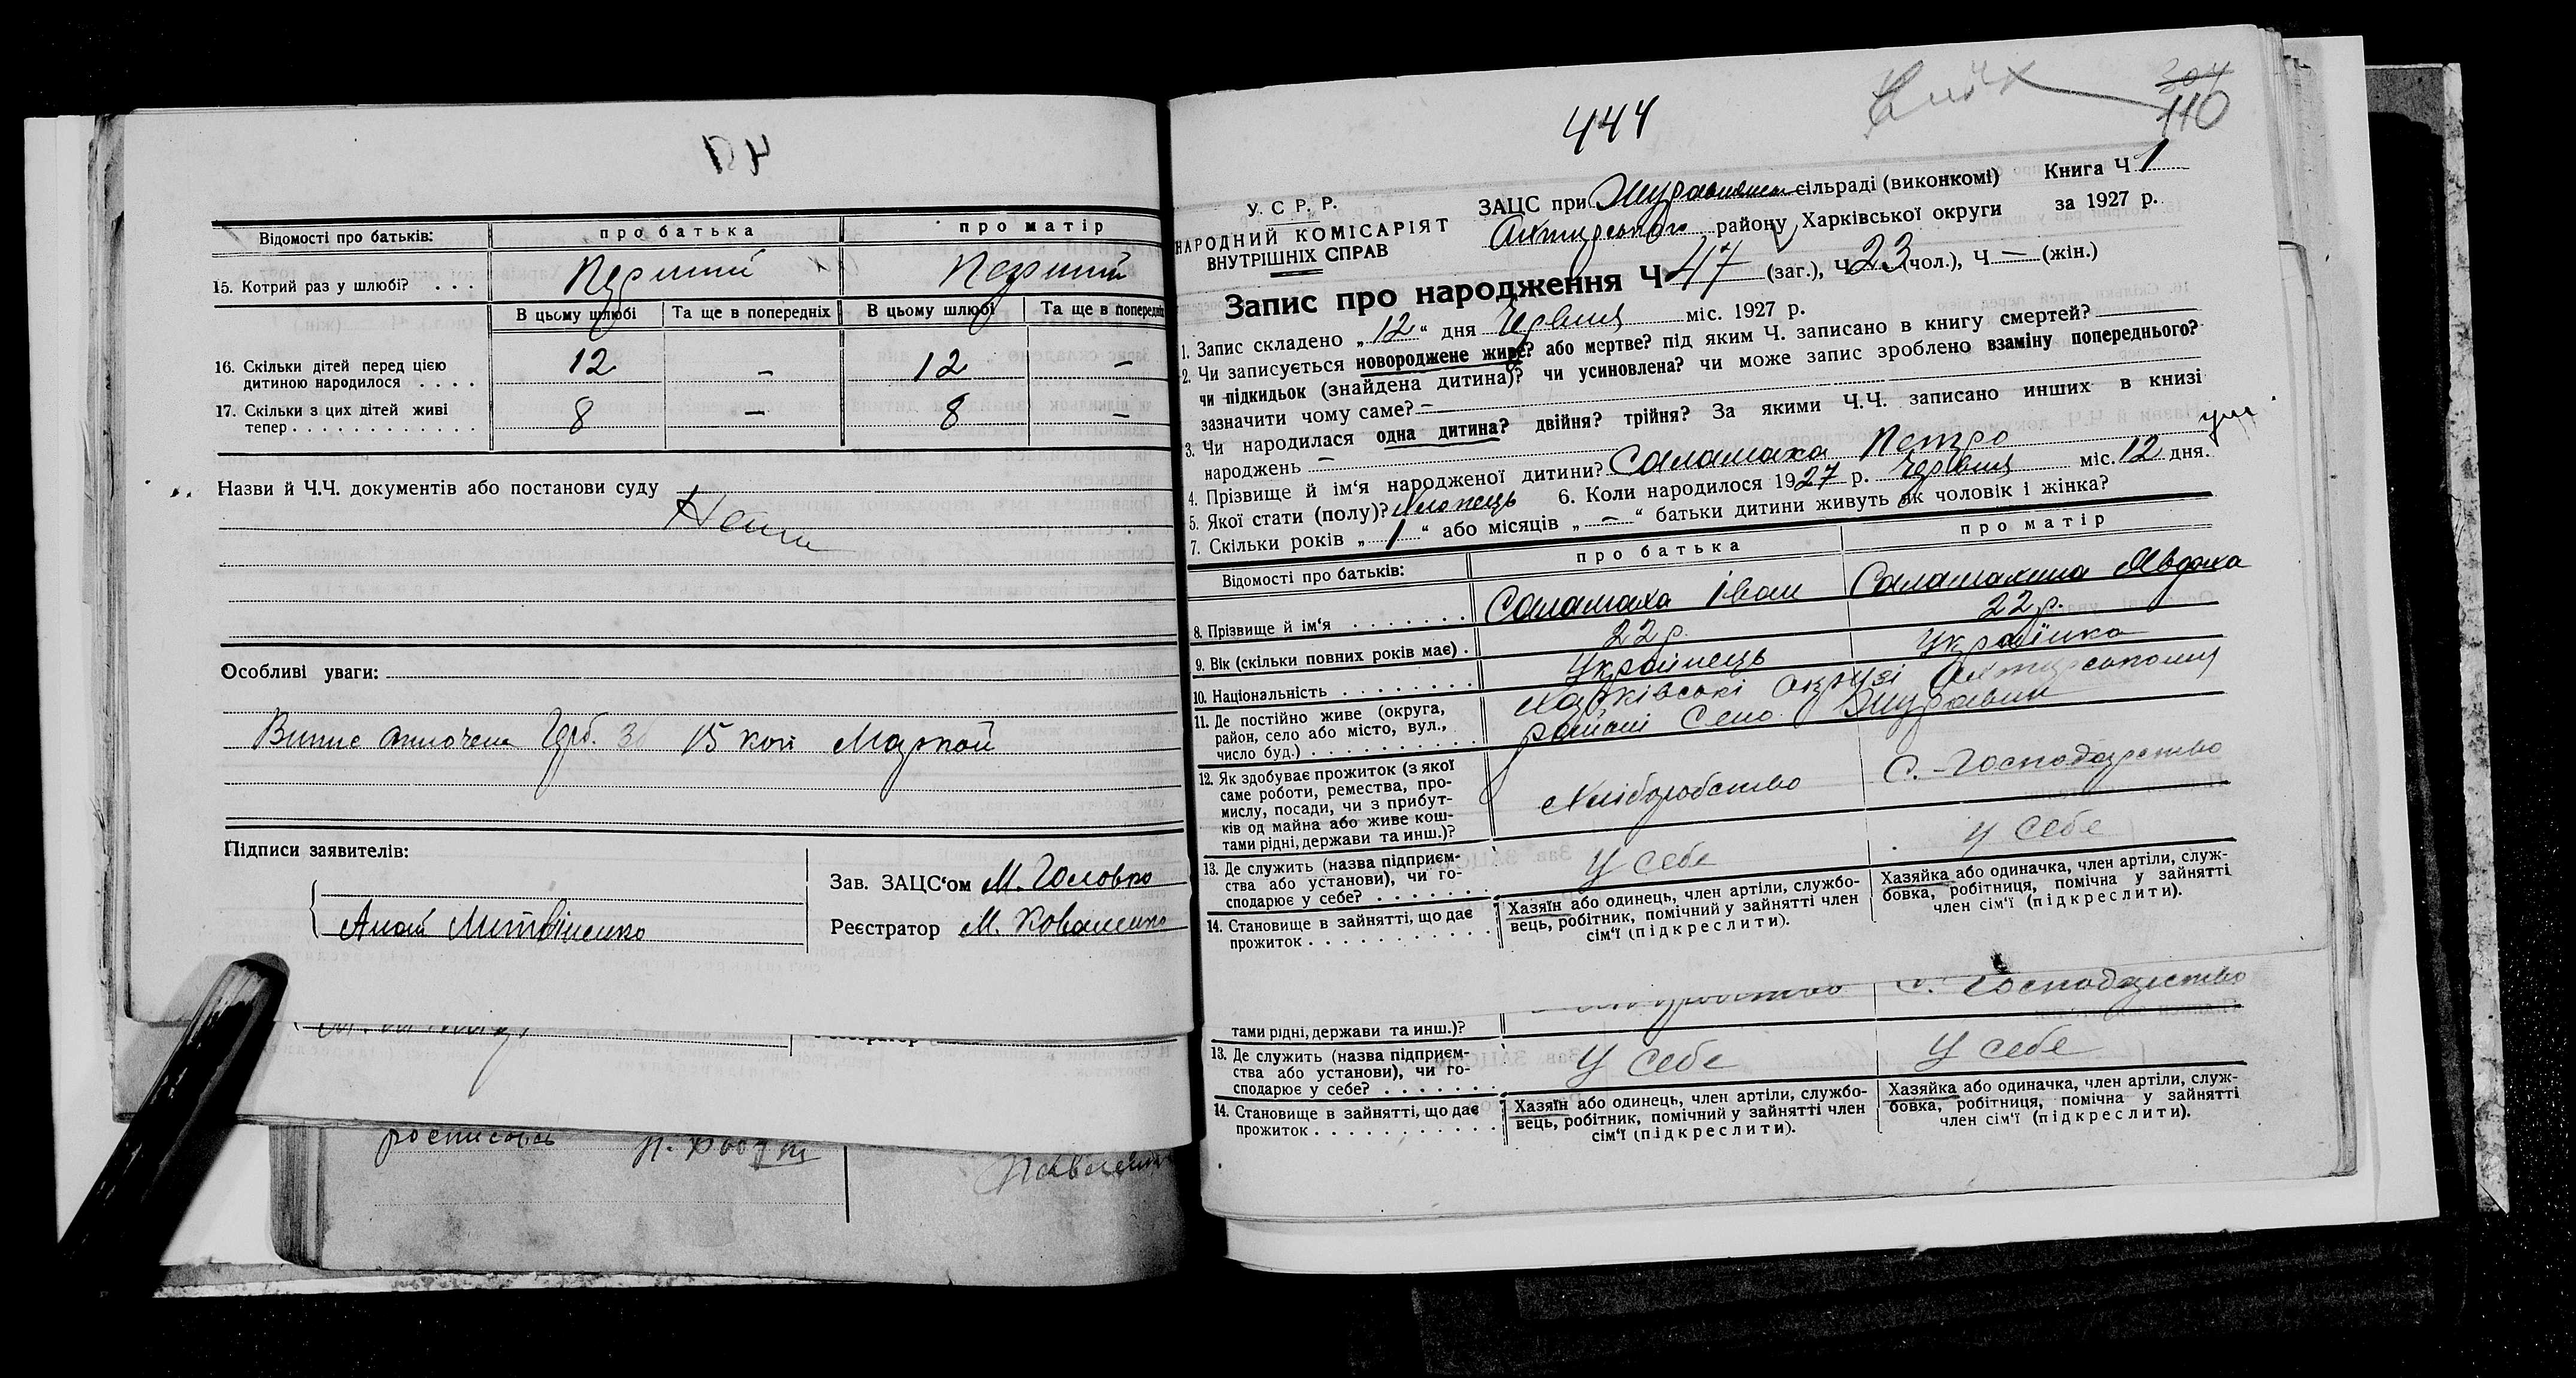 Відомості про батьків: про батька про матір
15. Котрий раз у шлюбі? . . . Перший Перший
В цьому шлюбі Та ще в попередніх В цьому шлюбі Та ще в попередніх
16. Скільки дітей перед цією
дитиною народилося . . . . 12 – 12 –
17. Скільки з цих дітей живі
тепер . . . . . . . . . . . . . 8 – 8 –
Назви й Ч.Ч. документів або постанови суду
Особливі уваги:
15 коп Маркой
Підписи заявителів:
Зав. ЗАЦС‘ом М. Головко
Литвіненко
Реєстратор М. Коваленко
444
304
110
У. С Р. Р.
НАРОДНИЙ КОМІСАРІЯТ
ВНУТРІШНІХ СПРАВ
ЗАЦС при сільраді (виконкомі) Книга Ч 1
району Харківської округи за 1927 р.
Запис про народження Ч 47 (заг.), Ч 23 (чол.), Ч — (жін.)
1. Запис складено „12“ дня Червня міс. 1927 р.
2. Чи записується новороджене живе? або мертве? під яким Ч. записано в книгу смертей?
чи підкидьок (знайдена дитина)? чи усиновлена? чи може запис зроблено взаміну попереднього?
зазначити чому саме? –
3. Чи народилася одна дитина? двійня? трійня? За якими Ч.Ч. записано инших в книзі
народжень –
4. Прізвище й ім‘я народженої дитини? Саламаха Петро
5. Якої стати (полу)? Хлопець 6. Коли народилося 1927 р. Червня міс. 12 дня.
7. Скільки років „1“ або місяців „–“ батьки дитини живуть як чоловік і жінка?
Відомості про батьків: про батька про матір
8. Прізвище й ім‘я . . . . . . . Саламаха Іван Саламахина Явдоха
9. Вік (скільки повних років має) . 22 р. 22 р.
10. Національність . . . . . . . . Українець Українка
11. Де постійно живе (округа,
район, село або місто, вул.,
число буд.) . . . . . . . . . .
Харківські окрузі
районі Село
12. Як здобуває прожиток (з якої
саме роботи, ремества, про-
мислу, посади, чи з прибут-
ків од майна або живе кош-
тами рідні, держави та инш.)?
Хліборобство С.-Господарство
13. Де служить (назва підприєм-
ства або установи), чи го-
сподарює у себе? . . . . . .
У себе У себе
14. Становище в зайнятті, що дає
прожиток . . . . . . . . . . .
Хазяїн або одинець, член артіли, службо-
вець, робітник, помічний у зайнятті член
сім‘ї (підкреслити).
Хазяйка або одиначка, член артіли, служ-
бовка, робітниця, помічна у зайнятті
член сім‘ї (підкреслити).
С. Господарство
тами рідні, держави та инш.)?
13. Де служить (назва підприєм-
ства або установи), чи го-
сподарює у себе? . . . . . . .
У себе У себе
14. Становище в зайнятті, що дає
прожиток . . . . . . . . . . .
Хазяїн або одинець, член артіли, службо-
вець, робітник, помічний у зайнятті член
сім‘ї (підкреслити).
Хазяйка або одиначка, член артіли, служ-
бовка, робітниця, помічна у зайнятті
член сім‘ї (підкреслити).